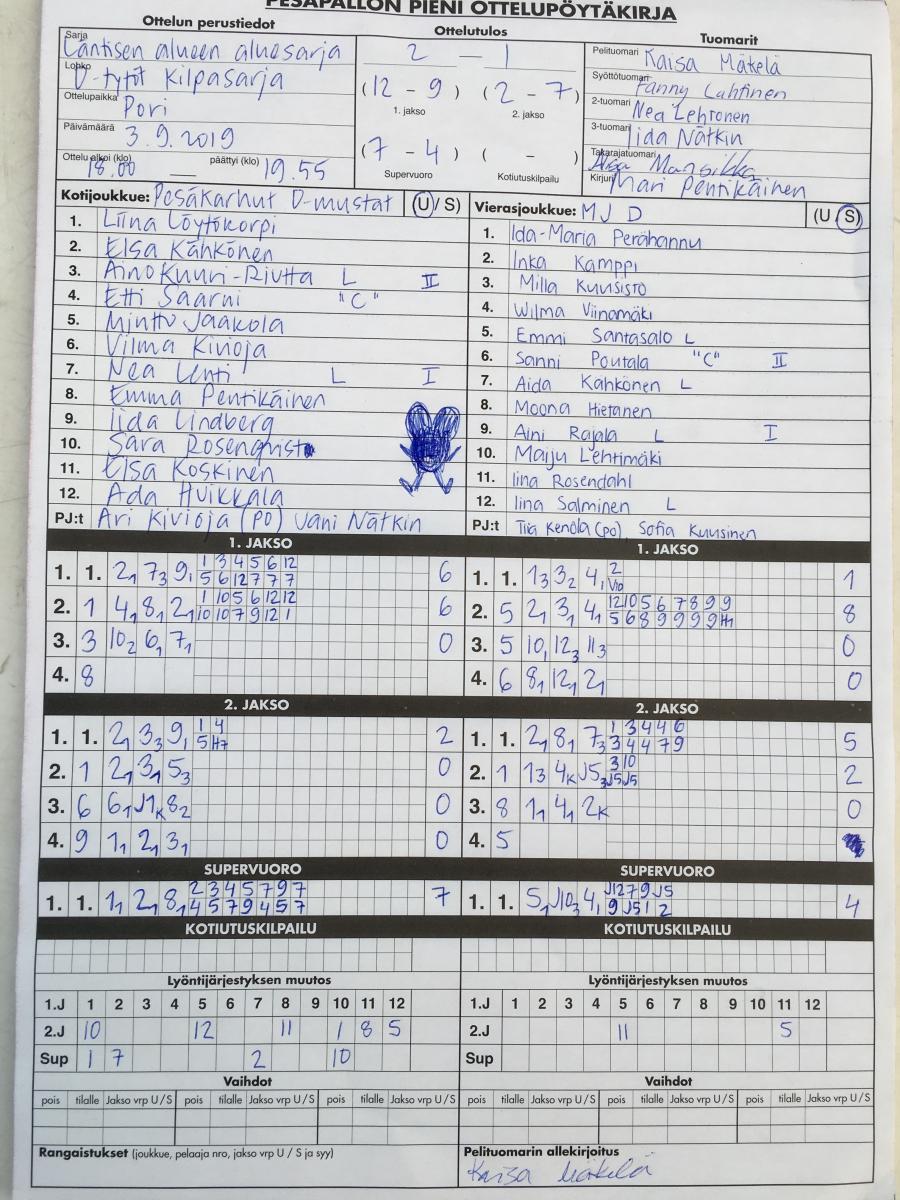 PESÄPALLON PIENI OTTELUPÖYTÄKIRJA
Ottelun perustiedot
Sarja Läntisen alueen aluesarja
Lohko D-tytöt Kilpasarja
Ottelupaikka Pori
Päivämäärä 3.9.2019
Ottelu alkoi (klo) 18.00 — päättyi (klo) 19.55
Ottelutulos
2 — 1
(12 - 9) (2 - 7)
1. jakso 2. jakso
(7 - 4) ( - )
Supervuoro Kotiutuskilpailu
Tuomarit
Pelituomari Kaisa Mäkelä
Syöttötuomari Fanny Lahtinen
2-tuomari Nea Lehtonen
3-tuomari Iida Nätkin
Takarajatuomari Mansikka
Kirjuri Mari Pentikäinen
Kotijoukkue: Pesäkarhut D-mustat (U/S)
1. Liina Löytökorpi
2. Elsa Kähkönen
3. Aino Kuuri-Riutta L II
4. Etti Saarni "C"
5. Minttu Jaakola
6. Vilma Kivioja
7. Nea Lehti L I
8. Emma Pentikäinen
9. Iida Lindberg
10. Sara Rosenqvist
11. Elsa Koskinen
12. Ada Huikkala
PJ:t Ari Kivioja (PO) Vani Nätkin
Vierasjoukkue: MJ D (U/S)
1. Ida-Maria Perähannu
2. Inka Kamppi
3. Milla Kuusisto
4. Wilma Viinamäki
5. Emmi Santasalo L
6. Sanni Poutala "C" II
7. Aida Kähkönen L
8. Moona Hietanen
9. Aini Rajala L I
10. Maiju Lehtimäki
11. Iina Rosendahl
12. Iina Salminen L
PJ:t Tiia Kenola (po), Sofia Kuusinen
1. JAKSO
1. 1. 2₁ 7₃ 9₁ 1 3 4 5 6 12 6
5 6 12 7 7 7
2. 1 4₁ 8₁ 2₁ 1 10 5 6 12 12 6
10 10 7 9 12 1
3. 3 10₂ 6₁ 7₁ 0
4. 8
1. JAKSO
1. 1. 1₃ 3₂ 4₁ 2 1
V10
2. 5 2₁ 3₁ 4₁ 12 10 5 6 7 8 9 9 8
5 6 8 9 9 9 9 H1
3. 5 10₁ 12₃ 11₃ 0
4. 6 8₁ 12₁ 2₁ 0
2. JAKSO
1. 1. 2₁ 3₃ 9₁ 1 4 2
5 H7
2. 1 2₁ 3₁ 5₃ 0
3. 6 6₁ J1K 8₂ 0
4. 9 1₁ 2₁ 3₁ 0
2. JAKSO
1. 1. 2₁ 8₁ 7₃ 1 3 4 4 6 5
3 4 4 7 9
2. 1 1₃ 4K J5₃ 3 10 2
J5 J5
3. 8 1₁ 4₁ 2K 0
4. 5
SUPERVUORO
1. 1. 1₁ 2₁ 8₁ 2 3 4 5 7 9 7 7
4 5 7 9 4 5 7
SUPERVUORO
1. 1. 5₁ J10₃ 4₁ J12 7 9 J5 4
9 J5 1 2
KOTIUTUSKILPAILU
KOTIUTUSKILPAILU
Lyöntijärjestyksen muutos
1.J 1 2 3 4 5 6 7 8 9 10 11 12
2.J 10 12 11 1 8 5
Sup 1 7 2 10
Lyöntijärjestyksen muutos
1.J 1 2 3 4 5 6 7 8 9 10 11 12
2.J 11 5
Sup
Vaihdot
pois tilalle Jakso vrp U/S pois tilalle Jakso vrp U/S pois tilalle Jakso vrp U/S
Vaihdot
pois tilalle Jakso vrp U/S pois tilalle Jakso vrp U/S pois tilalle Jakso vrp U/S
Rangaistukset (joukkue, pelaaja nro, jakso vrp U / S ja syy)
Pelituomarin allekirjoitus
Kaisa Mäkelä